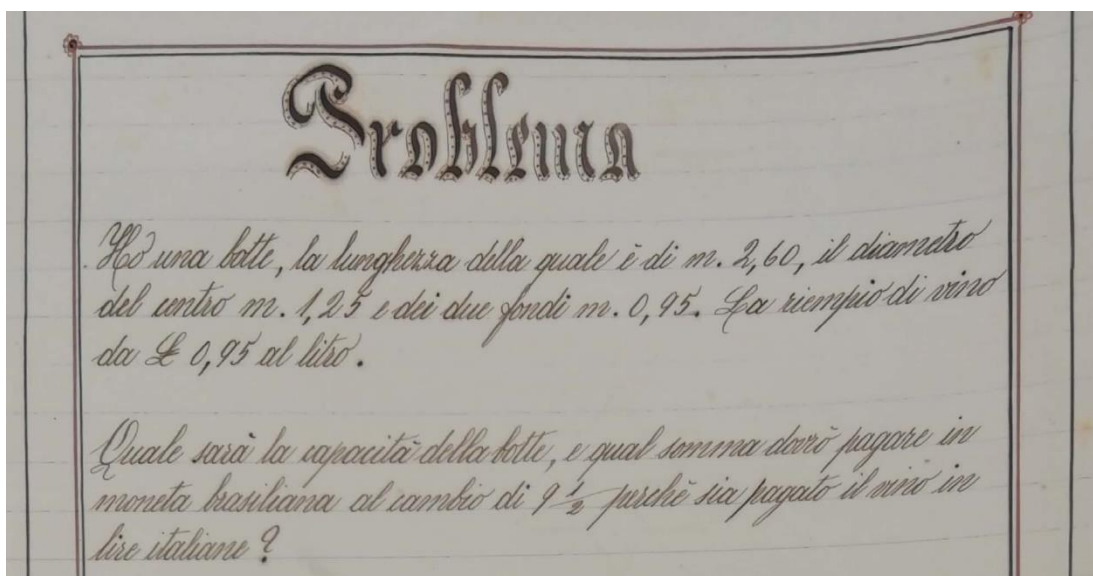 Problema
Hò una botte, la lunghezza della quale è di m. 2,60, il diametro
del centro m. 1,25 e dei due fondi m. 0,95. La riempio di vino
da £ 0,95 al litro.
Quale sarà la capacità della botte, e qual somma dovrò pagare in
moneta brasiliana al cambio di 9 1/2 perchè sia pagato il vino in
lire italiane?